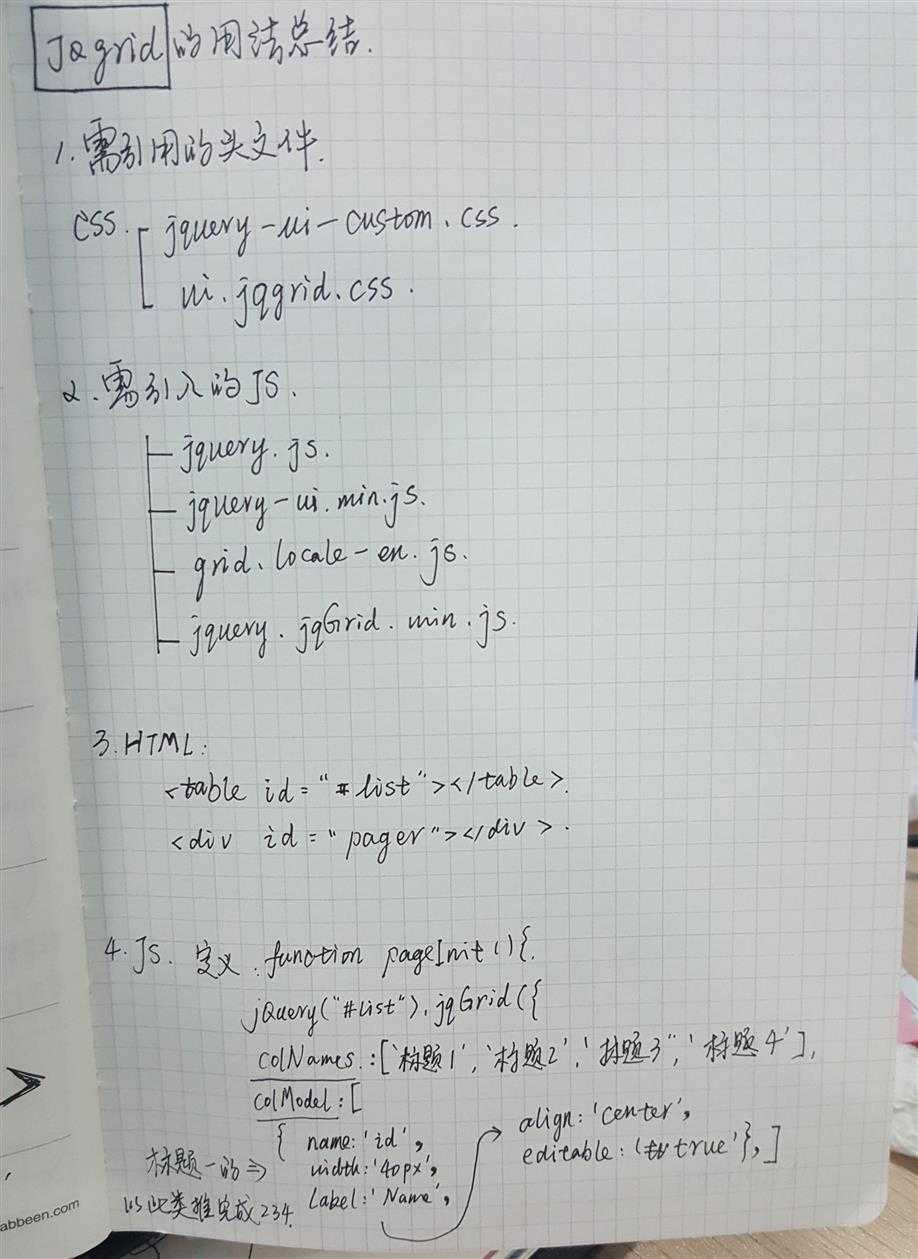 JQgrid的用法总结.
1.需引用的头文件.
CSS. jquery-ui-custom.css.
ui.jqgrid.css.
2.需引入的JS.
jquery.js.
jquery-ui.min.js.
grid.locale-en.js.
jquery.jqGrid.min.js.
3.HTML:
<table id="#list"></table>.
<div id="pager"></div>.
4.JS. 定义:function pageInit(){.
jQuery("#list").jqGrid({
colNames:['标题1','标题2','标题3",'标题4'],
colModel:[
{ name:'id',
width:'40px',
label:'Name',
align:'center',
editable:'true'},]
标题一的⇒
以此类推完成234.
abbeen.com